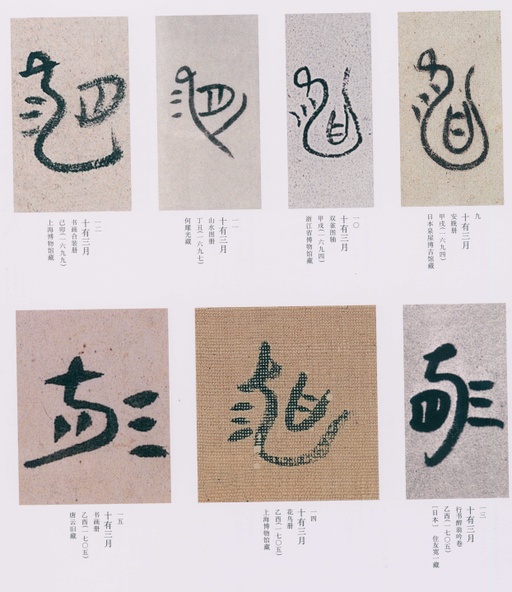 九
十有三月
安晚册
甲戌(一六九四)
日本泉屋博古馆藏
一〇
十有三月
双雀图轴
甲戌(一六九四)
浙江省博物馆藏
一一
十有三月
山水图册
丁丑(一六九七)
何耀光藏
一二
十有三月
书画合装册
己卯(一六九九)
上海博物馆藏
一三
十有三月
行书醉翁吟卷
乙酉(一七〇五)
(日本)住友宽一藏
一四
十有三月
花鸟册
乙酉(一七〇五)
上海博物馆藏
一五
十有三月
书画册
乙酉(一七〇五)
唐云旧藏